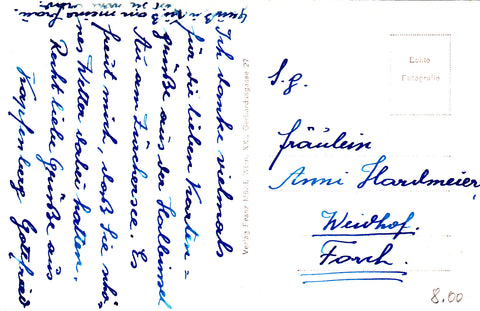 Ich danke vielmals
für die lieben Karten =
grüße aus der Halbinsel
Au am Zürchersee. Es
freut mich, daß Sie schö-
nes Wetter dabei hatten.
Recht liebe Grüße aus
Kapfenberg Gottfried
an meine Frau.
Verlag Franz Mörtl, Wien, XX., Gerhardusgasse 27
Echte
Fotografie
S. g.
Fräulein
Anni Hardmeier,
Weidhof.
Forch.
8.00